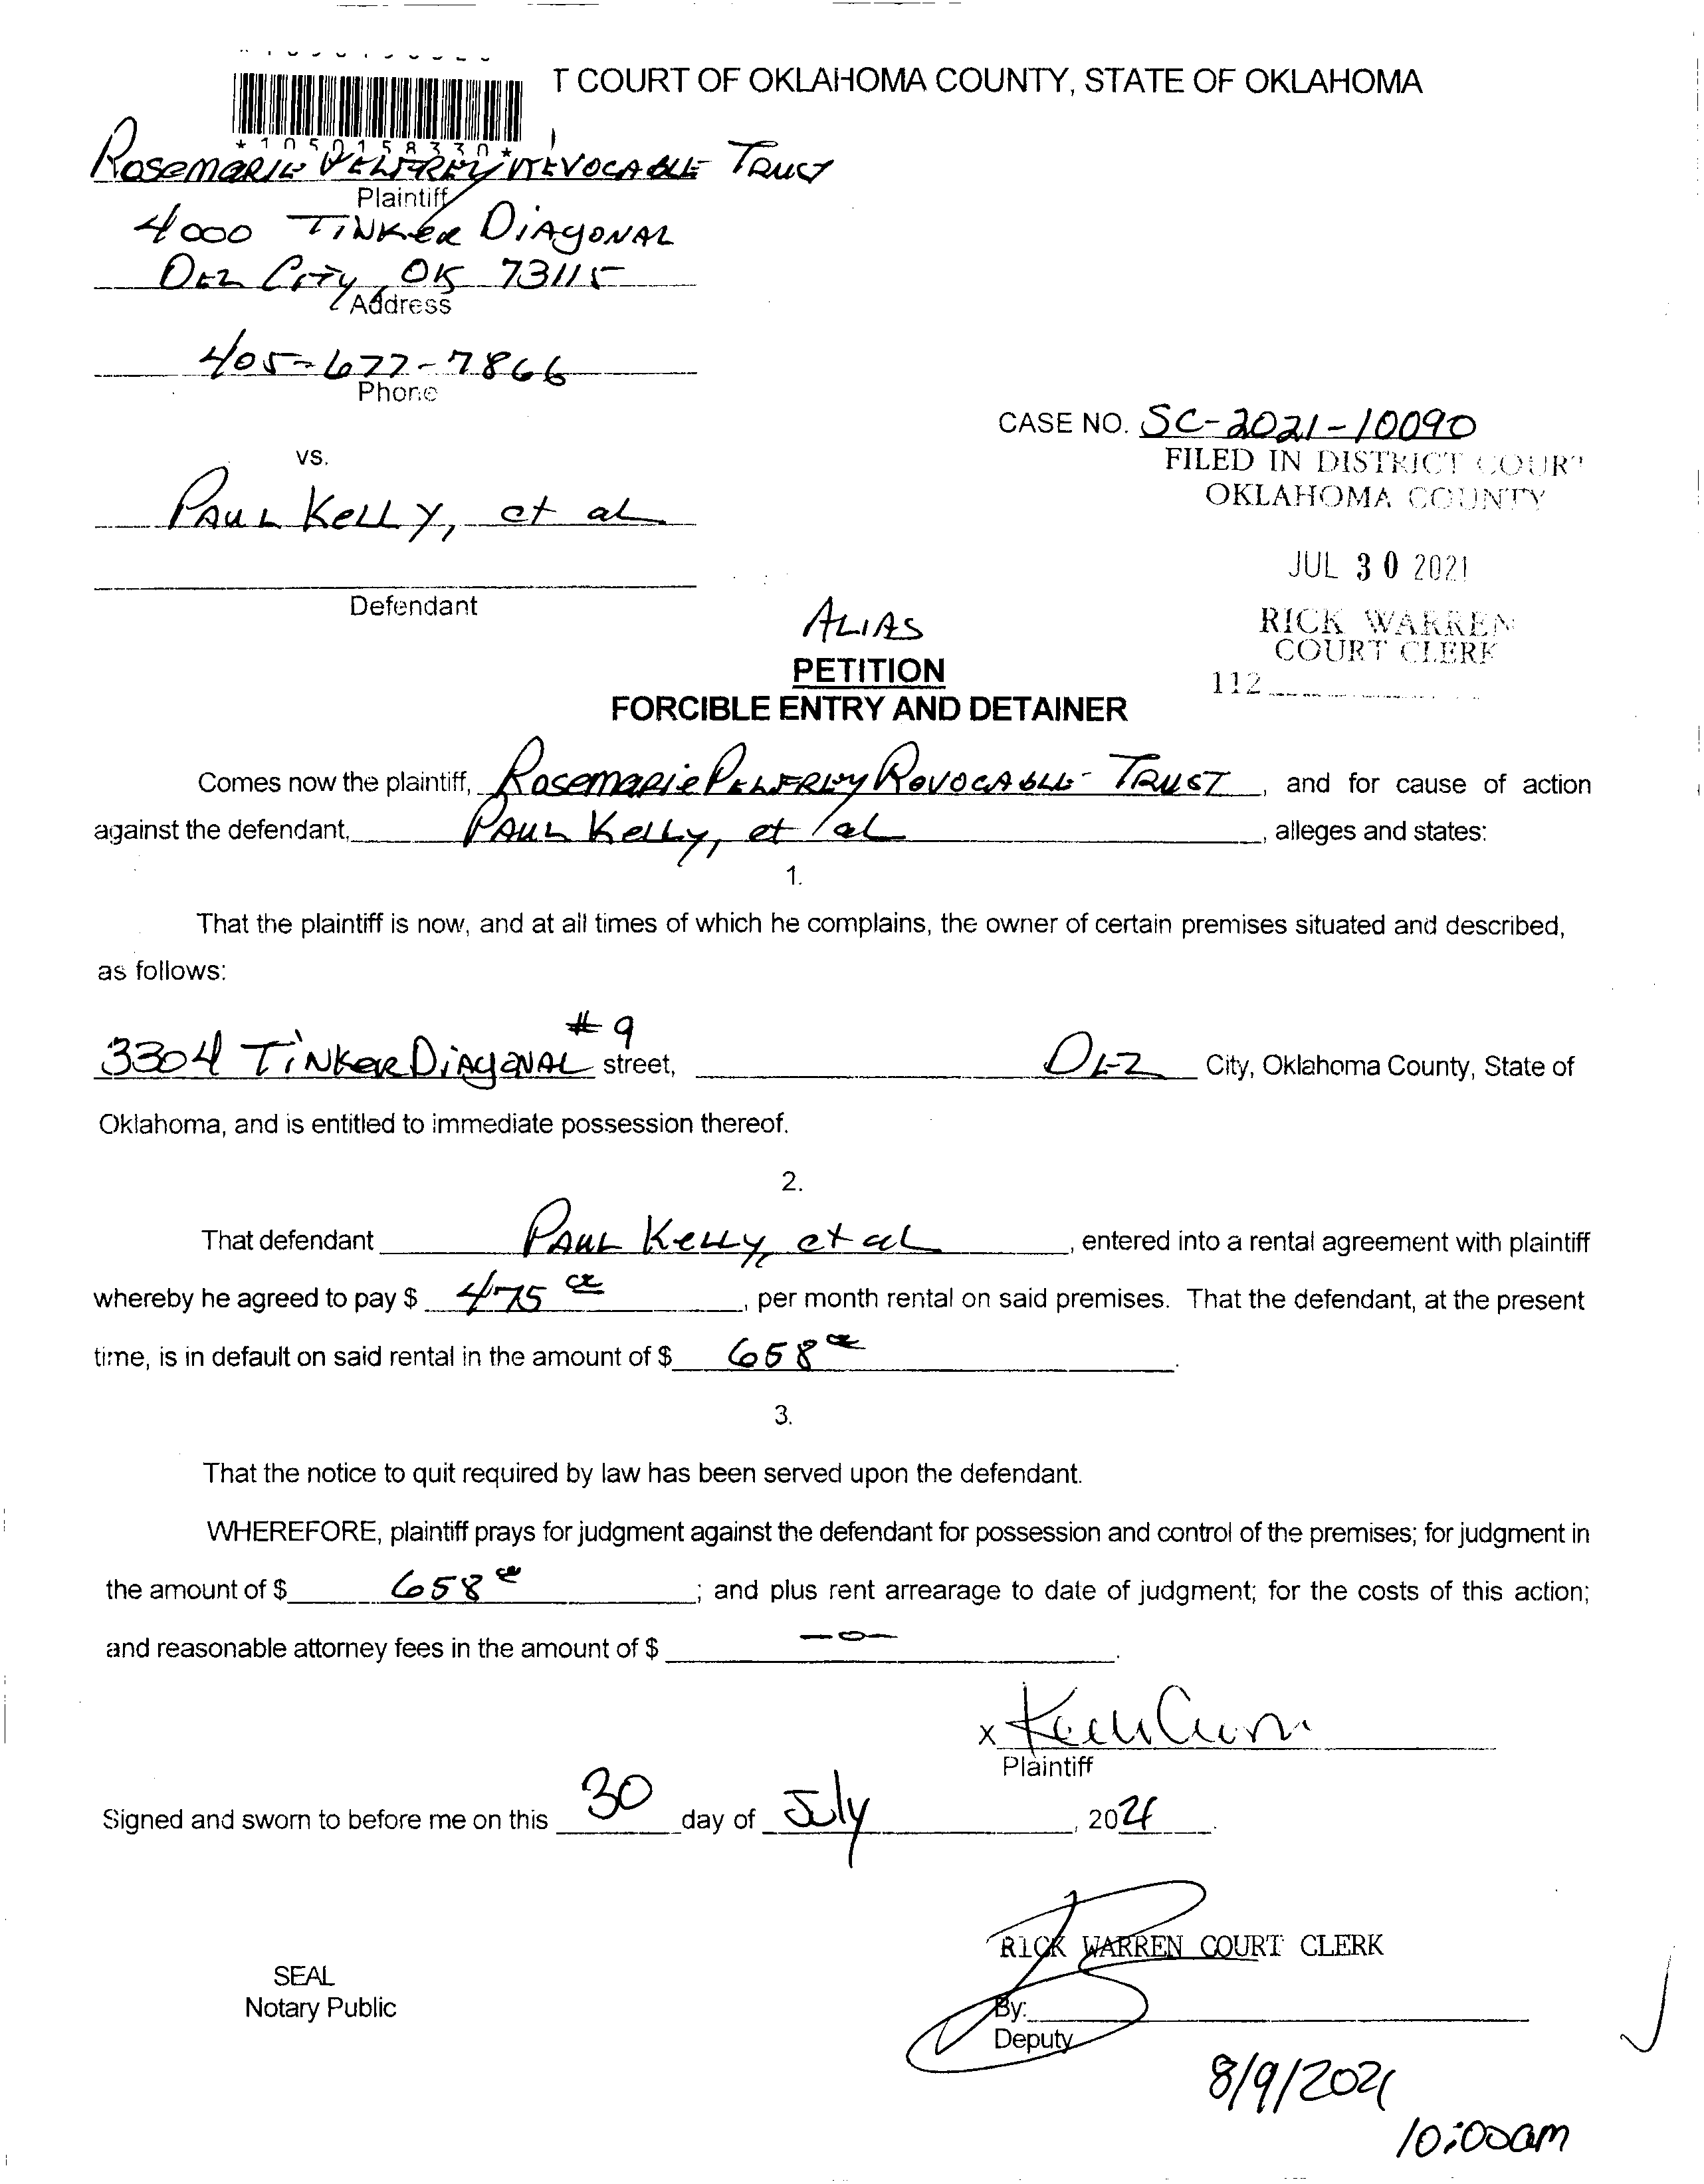 T COURT OF OKLAHOMA COUNTY, STATE OF OKLAHOMA
*1050158330*
Rosemarie Pelfrey Revocable Trust
Plaintiff
4000 Tinker Diagonal
Del City, OK 73115
Address
405-677-7866
Phone
CASE NO. SC-2021-10090
FILED IN DISTRICT COURT
OKLAHOMA COUNTY
vs.
Paul Kelly, et al
JUL 30 2021
Defendant
RICK WARREN
COURT CLERK
112
Alias
PETITION
FORCIBLE ENTRY AND DETAINER
Comes now the plaintiff, Rosemarie Pelfrey Rovocable Trust, and for cause of action
against the defendant, Paul Kelly, et al, alleges and states:
1.
That the plaintiff is now, and at all times of which he complains, the owner of certain premises situated and described,
as follows:
3304 Tinker Diagonal #9 street, Del City, Oklahoma County, State of
Oklahoma, and is entitled to immediate possession thereof.
2.
That defendant Paul Kelly, et al, entered into a rental agreement with plaintiff
whereby he agreed to pay $ 475 00, per month rental on said premises. That the defendant, at the present
time, is in default on said rental in the amount of $ 658 00.
3.
That the notice to quit required by law has been served upon the defendant.
WHEREFORE, plaintiff prays for judgment against the defendant for possession and control of the premises; for judgment in
the amount of $ 658 00; and plus rent arrearage to date of judgment; for the costs of this action;
and reasonable attorney fees in the amount of $ -0-.
x
Plaintiff
Signed and sworn to before me on this 30 day of July, 2021.
RICK WARREN COURT CLERK
SEAL
Notary Public
By:
Deputy
8/9/2021
10:00am